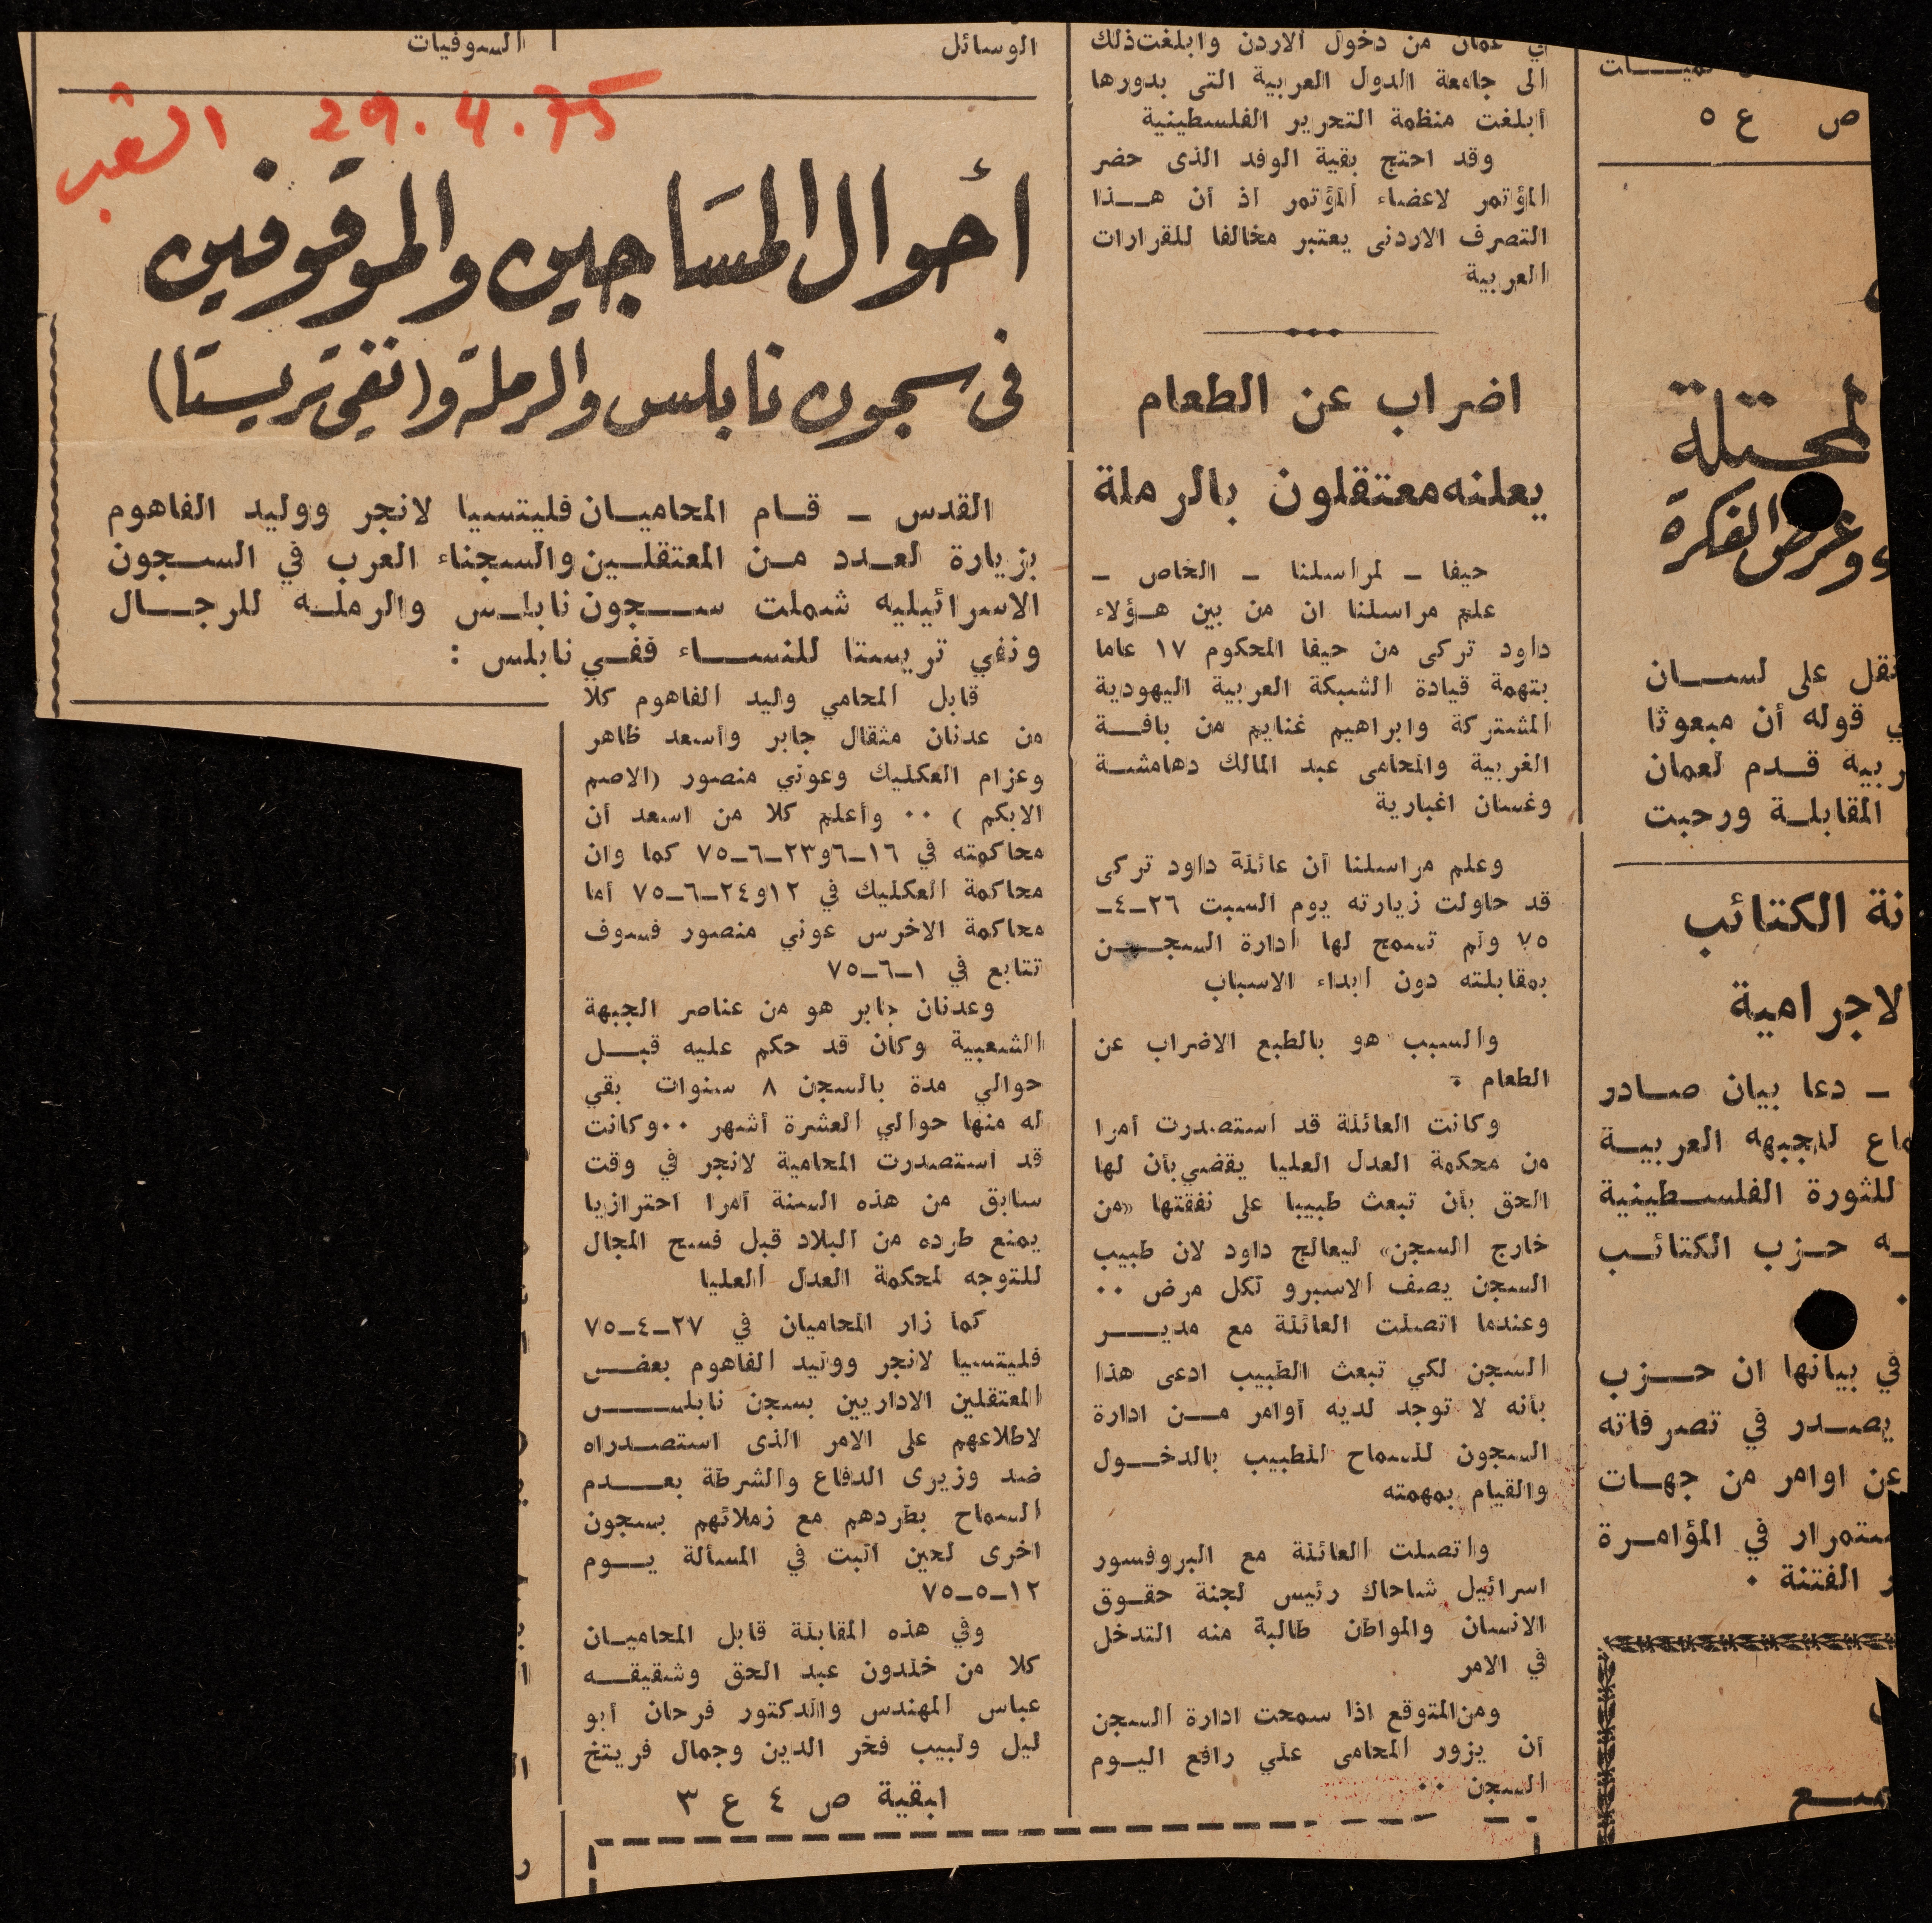 ـميـــات
ص ع ٥
لمحتلة
وعرض الفكرة
نقل على لســـان
ي قوله أن مبعوثا
ربية قــدم لعمان
المقابلــة ورحبت
نة الكتائب
الاجرامية
ـ دعا بيان صــادر
ماع للجبهه العربيــة
للثورة الفلســطينية
ـه حــزب الكتائــب
في بيانها ان حـــزب
يصــدر في تصرفاته
عن اوامر من جهــات
ستمرار في المؤامـرة
ر الفتنة ٠
في عمان من دخول الاردن وابلغت ذلك
الى جامعة الدول العربية التى بدورها
أبلغت منظمة التحرير الفلسطينية
وقد احتج بقية الوفد الذى حضر
المؤتمر لاعضاء المؤتمر اذ أن هــذا
التصرف الاردنى يعتبر مخالفا للقرارات
العربية
اضراب عن الطعام
يعلنه معتقلون بالرملة
حيفا ـ لمراسلنا ـ الخاص ـ
علم مراسلنا ان من بين هــؤلاء
داود تركى من حيفا المحكوم ١٧ عاما
بتهمة قيادة الشبكة العربية اليهودية
المشتركة وابراهيم غنايم من باقــة
الغربية والمحامى عبد المالك دهامشــة
وغسان اغبارية
وعلم مراسلنا أن عائلة داود تركى
قد حاولت زيارته يوم السبت ٢٦ـ٤ـ
٧٥ ولم تسمح لها ادارة السجــن
بمقابلته دون ابداء الاسباب
والسبب هو بالطبع الاضراب عن
الطعام ٠
وكانت العائلة قد استصدرت أمرا
من محكمة العدل العليا يقضي بأن لها
الحق بأن تبعث طبيبا على نفقتها «من
خارج السجن» ليعالج داود لان طبيب
السجن يصف الاسبرو لكل مرض ٠٠
وعندما اتصلت العائلة مع مديـــر
السجن لكي تبعث الطبيب ادعى هذا
بأنه لا توجد لديه أوامر مــن ادارة
السجون للسماح للطبيب بالدخــول
والقيام بمهمته
واتصلت العائلة مع البروفسور
اسرائيل شاحاك رئيس لجنة حقــوق
الانسان والمواطن طالبة منه التدخل
في الامر
ومن المتوقع اذا سمحت ادارة السجن
أن يزور المحامى علي رافع اليــوم
السجن ٠٠
الوسائل
السوفيات
29.4.75 الشعب
أحوال المسَاجين والموقوفين
فى سجون نابلس والرملة و(نفى تريستا)
القدس ـ قــام المحاميــان فليتسيا لانجر ووليد الفاهوم
بزيارة لعــدد مــن المعتقلــين والسجناء العرب في الســجون
الاسرائيليه شملت ســـجون نابلــس والرملــه للرجـــال
ونفي تريستا للنســـاء ففــي نابلس :
قابل المحامي وليد الفاهوم كلا
من عدنان مثقال جابر وأسعد ظاهر
وعزام العكليك وعوني منصور (الاصم
الابكم ) ٠٠ وأعلم كلا من اسعد أن
محاكمته في ١٦ـ٦و٢٣ـ٦ـ٧٥ كما وان
محاكمة العكليك في ١٢و٢٤ـ٦ـ٧٥ أما
محاكمة الاخرس عوني منصور فسوف
تتابع في ١ـ٦ـ٧٥
وعدنان جابر هو من عناصر الجبهة
الشعبية وكان قد حكم عليه قبــل
حوالي مدة بالسجن ٨ سنوات بقي
له منها حوالي العشرة أشهر ٠٠وكانت
قد استصدرت المحامية لانجر في وقت
سابق من هذه السنة أمرا احترازيا
يمنع طرده من البلاد قبل فسح المجال
للتوجه لمحكمة العدل العليا
كما زار المحاميان في ٢٧ـ٤ـ٧٥
فليتسيا لانجر ووليد الفاهوم بعــض
المعتقلين الاداريين بسجن نابلـــس
لاطلاعهم على الامر الذى استصــدراه
ضد وزيرى الدفاع والشرطة بعــدم
السماح بطردهم مع زملائهم بسجون
اخرى لحين البت في المسألة يــوم
١٢ـ٥ـ٧٥
وفي هذه المقابلة قابل المحاميــان
كلا من خلدون عبد الحق وشقيقــه
عباس المهندس والدكتور فرحان أبو
ليل ولبيب فخر الدين وجمال فريتخ
ابقية ص ٤ ع ٣